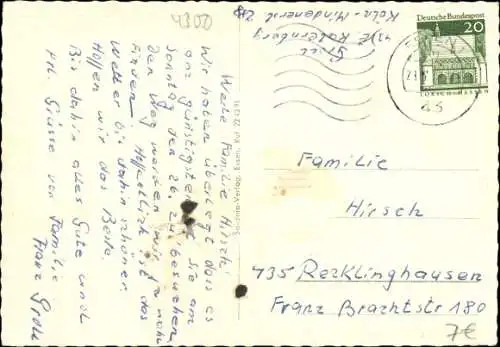 4300
Werte Familie Hirsch!
Wir haben überlegt das es
am günstigsten ist Sie am
Sonntag den 26. zu besuchen
den Weg werden wir
finden. Hoffentlich ist das
Wetter bis dahin schöner
Hoffen wir das Beste.
Bis dahin alles Gute und
Grüsse von Familie
Franz
43 E Katernberg
Köln-Mindenerstr.
Deutsche Bundespost
20
Familie
Hirsch
435 Recklinghausen
Franz Brachtstr 180
7€